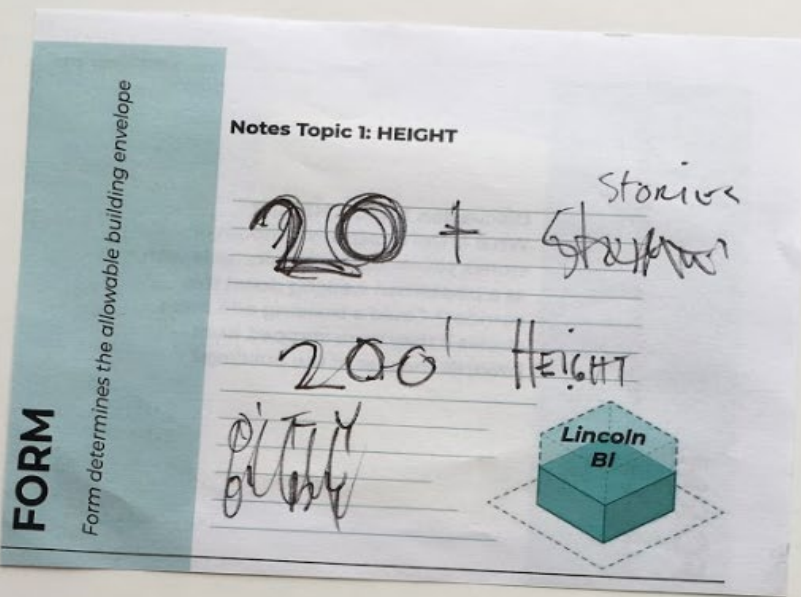 FORM
Form determines the allowable building envelope
Notes Topic 1: HEIGHT
Stories
20 +
200' HEIGHT
Lincoln
BI